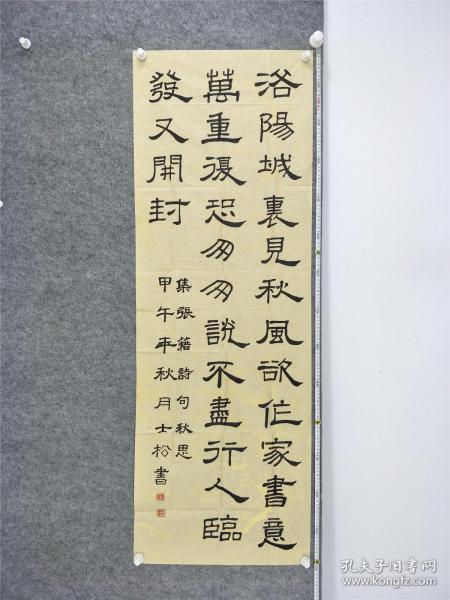 洛陽城裏見秋風欲作家書意
萬重復恐匆匆說不盡行人臨
發又開封
集張籍詩句秋思
甲午年秋月士松書
孔夫子旧书网
www.kongfz.com